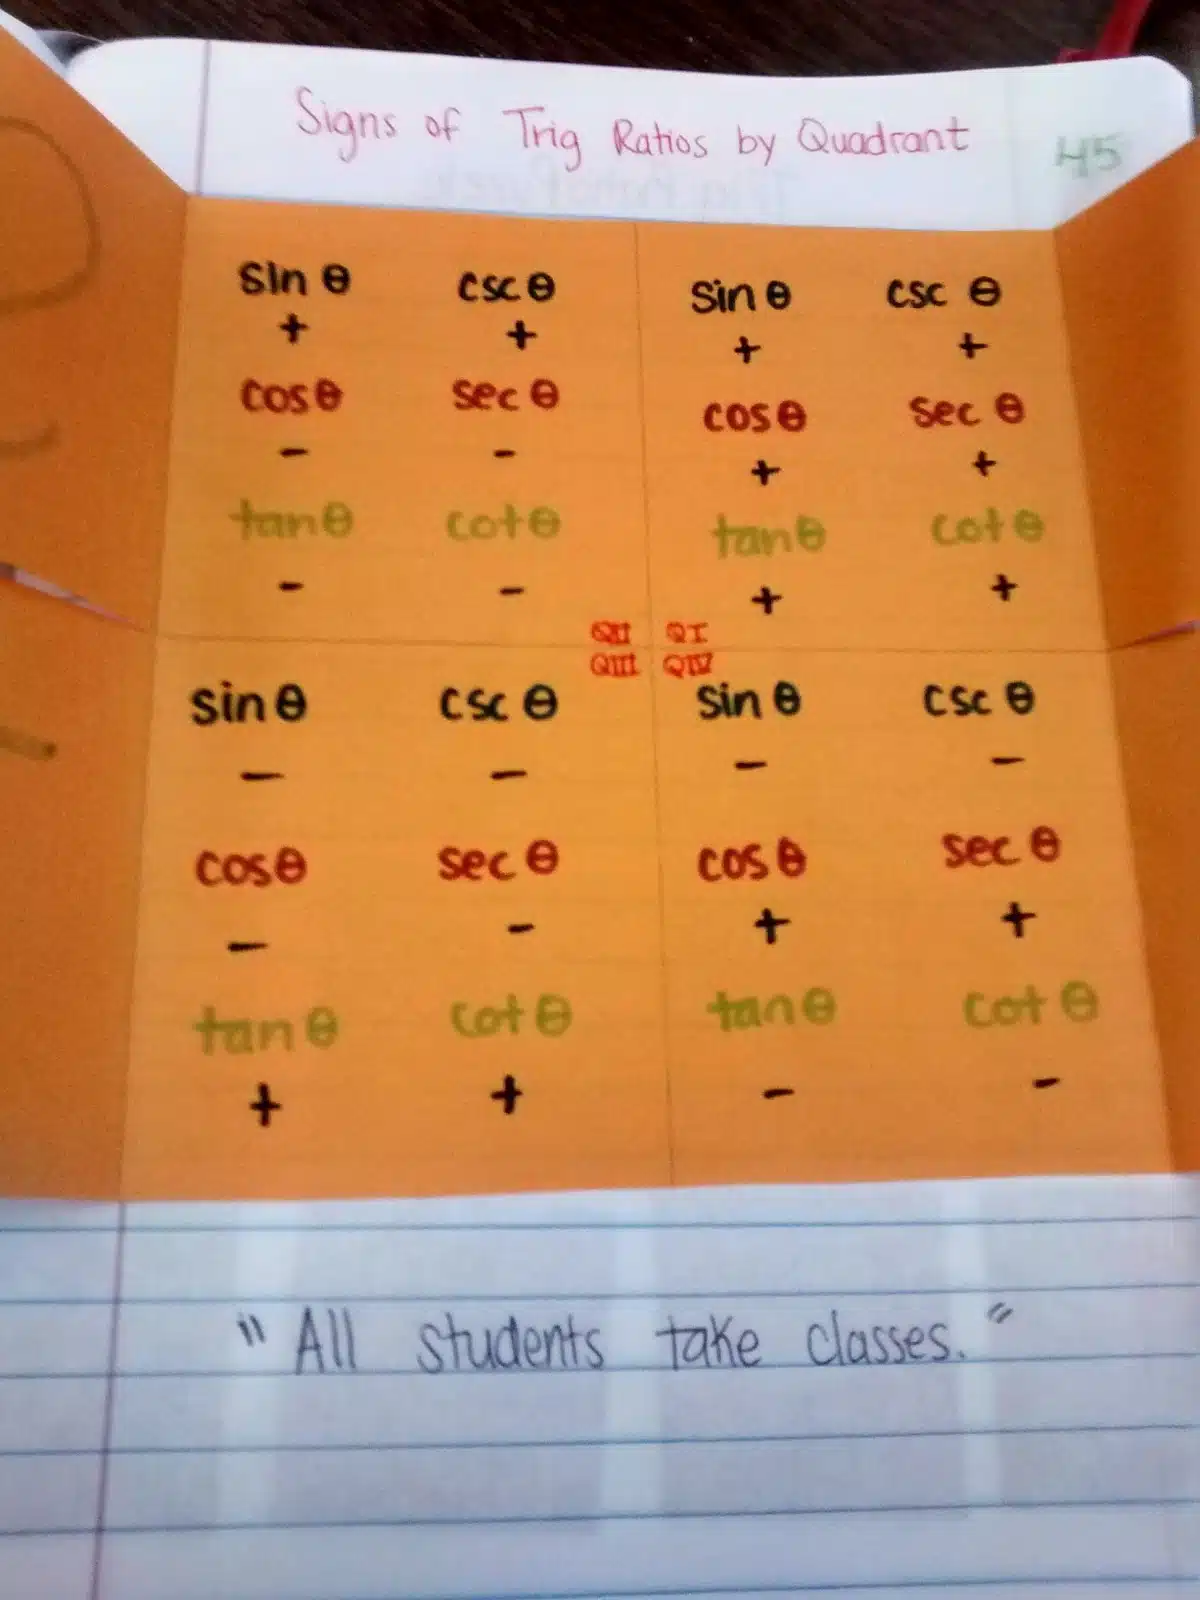 Signs of Trig Ratios by Quadrant 45
sin θ csc θ sin θ csc θ
+ + + +
cos θ sec θ cos θ sec θ
- - + +
tan θ cot θ tan θ cot θ
- - + +
QII QI
QIII QIV
sin θ csc θ sin θ csc θ
- - - -
cos θ sec θ cos θ sec θ
- - + +
tan θ cot θ tan θ cot θ
+ + - -
"All students take classes."